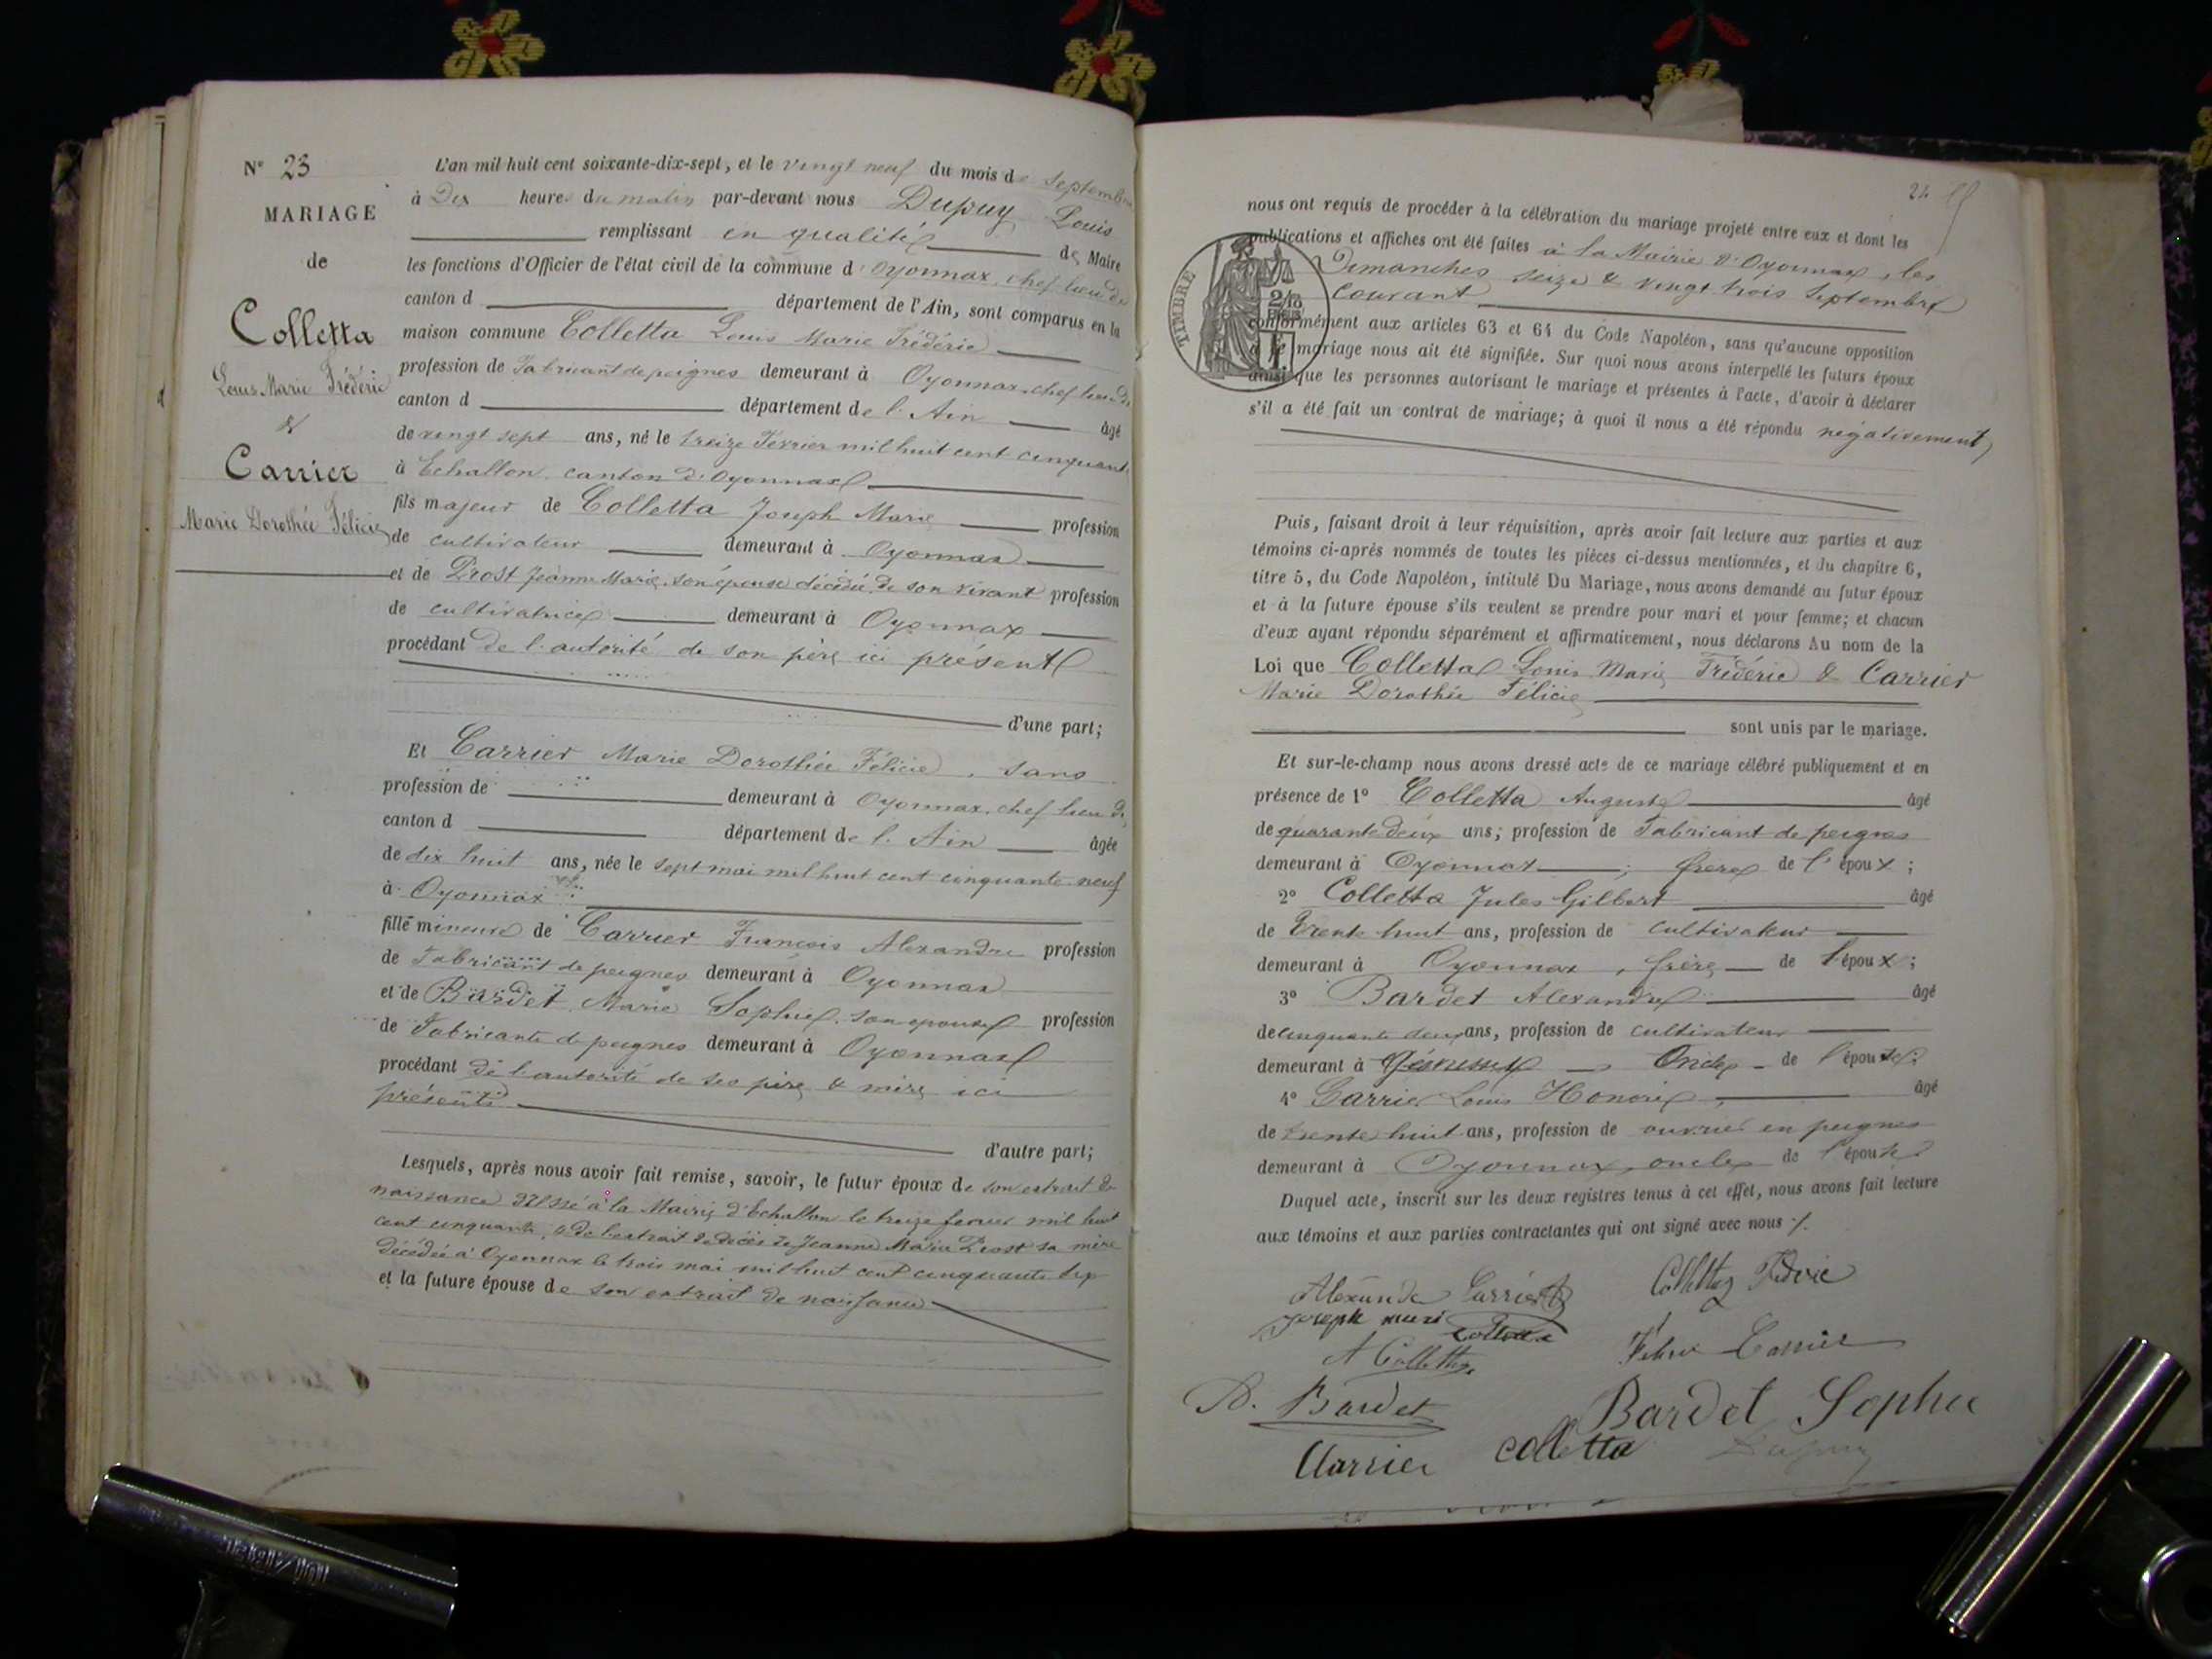 N° 23
MARIAGE
de
Colletta
Louis Marie Frédéric
&
Carrier
Marie Dorothée Félicie
L'an mil huit cent soixante-dix-sept, et le vingt neuf du mois de Septembre
à Dix heures du matin par-devant nous Dupuy Louis
remplissant en qualité de Maire
les fonctions d'Officier de l'état civil de la commune d'Oyonnax, chef lieu de
canton d département de l'Ain, sont comparus en la
maison commune Colletta Louis Marie Frédéric
profession de Fabricant de peignes demeurant à Oyonnax, chef lieu de
canton d département de l'Ain âgé
de vingt sept ans, né le treize Février mil huit cent cinquante
à Echallon, canton d'Oyonnax
fils majeur de Colletta Joseph Marie profession
de cultivateur demeurant à Oyonnax
et de Prost Jeanne Marie, son épouse décédée, de son vivant profession
de cultivatrice demeurant à Oyonnax
procédant de l'autorité de son père ici présent
d'une part;
Et Carrier Marie Dorothée Félicie, sans
profession de demeurant à Oyonnax, chef lieu de
canton d département de l'Ain âgée
de dix huit ans, née le sept mai mil huit cent cinquante neuf
à Oyonnax
fille mineure de Carrier François Alexandre profession
de Fabricant de peignes demeurant à Oyonnax
et de Bardet Marie Sophie, son épouse profession
de Fabricante de peignes demeurant à Oyonnax
procédant de l'autorité de ses père & mère ici
présents
d'autre part;
Lesquels, après nous avoir fait remise, savoir, le futur époux de son extrait de
naissance à la Mairie d'Echallon le treize février mil huit
cent cinquante, & de l'extrait de décès de Jeanne Marie Prost sa mère
décédée à Oyonnax le trois mai mil huit cent cinquante sep
et la future épouse de son extrait de naissance
24
nous ont requis de procéder à la célébration du mariage projeté entre eux et dont les
publications et affiches ont été faites à la Mairie d'Oyonnax, les
Dimanches seize & vingt trois Septembre
courant
TIMBRE
conformément aux articles 63 et 64 du Code Napoléon, sans qu'aucune opposition
à ce mariage nous ait été signifiée. Sur quoi nous avons interpellé les futurs époux
ainsi que les personnes autorisant le mariage et présentes à l'acte, d'avoir à déclarer
s'il a été fait un contrat de mariage; à quoi il nous a été répondu négativement
Puis, faisant droit à leur réquisition, après avoir fait lecture aux parties et aux
témoins ci-après nommés de toutes les pièces ci-dessus mentionnées, et du chapitre 6,
titre 5, du Code Napoléon, intitulé Du Mariage, nous avons demandé au futur époux
et à la future épouse s'ils veulent se prendre pour mari et pour femme; et chacun
d'eux ayant répondu séparément et affirmativement, nous déclarons Au nom de la
Loi que Colletta Louis Marie Frédéric & Carrier
Marie Dorothée Félicie
sont unis par le mariage.
Et sur-le-champ nous avons dressé acte de ce mariage célébré publiquement et en
présence de 1° Colletta Auguste âgé
de quarante deux ans; profession de Fabricant de peignes
demeurant à Oyonnax; frère de l'époux;
2° Colletta Jules Gilbert âgé
de Trente huit ans, profession de cultivateur
demeurant à Oyonnax, frère de l'époux;
3° Bardet Alexandre âgé
de cinquante deux ans, profession de cultivateur
demeurant à Oncle de l'épouse;
4° Carrier Louis Honoré, âgé
de trente huit ans, profession de ouvrier en peignes
demeurant à Oyonnax, oncle de l'épouse
Duquel acte, inscrit sur les deux registres tenus à cet effet, nous avons fait lecture
aux témoins et aux parties contractantes qui ont signé avec nous ./.
Alexandre Carrier Colletta Frédéric
Joseph marie Colletta
A Colletta Félicie Carrier
A. Bardet Bardet Sophie
Carrier Colletta Dupuy